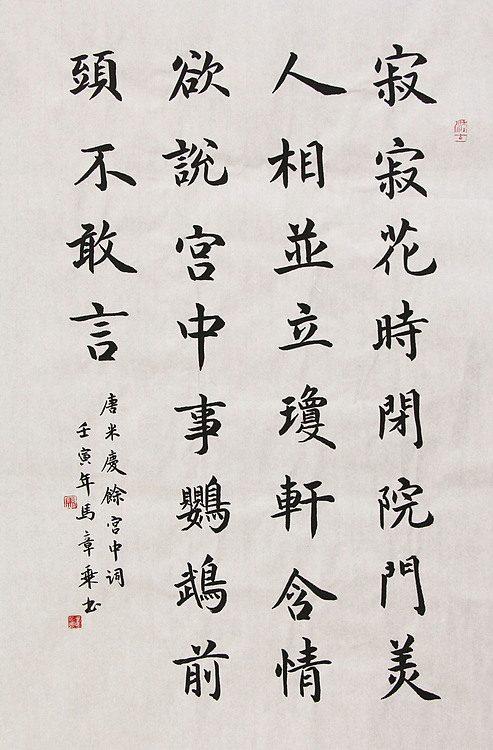 寂寂花時閉院門美
人相並立瓊軒含情
欲說宮中事鸚鵡前
頭不敢言
唐米慶餘宮中词
壬寅年馬章乘书